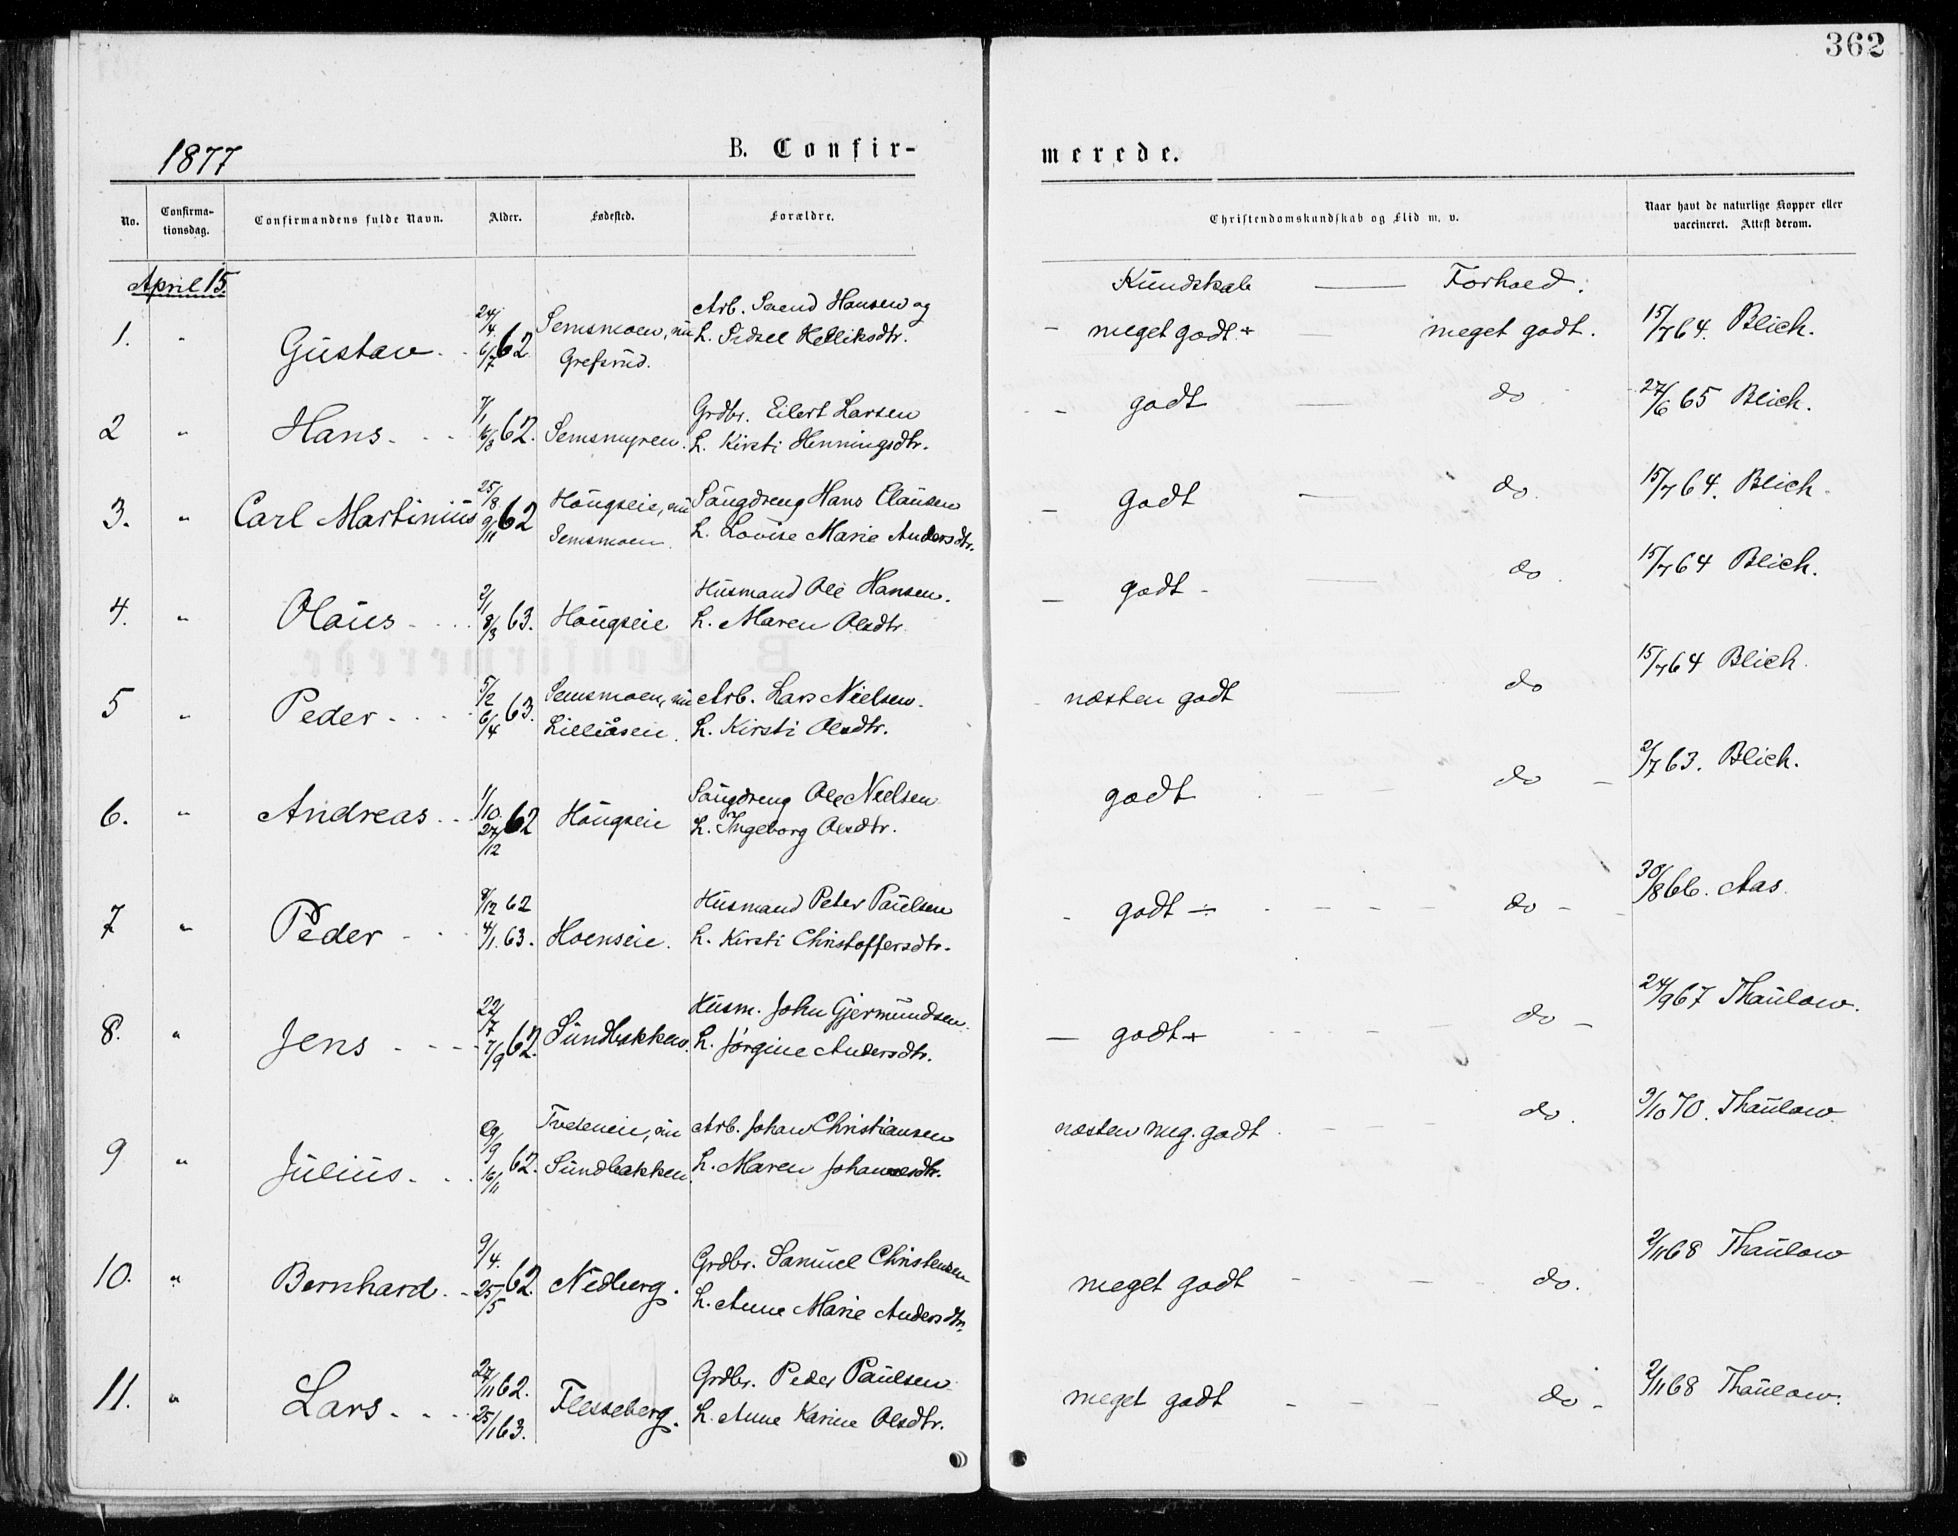 362
1877
B. Confirmerede.
No. Confirmationsdag. Confirmandens fulde Navn. Alder. Fødested. Forældre. Christendomskundskab og Flid m. v. Naar havt de naturlige Kopper eller vaccineret. Attest derom.
April 15.
Kundskab — Forhold.
1. " Gustav. 24/4 6/7 62 Semsmoen, nu Grefsrud. Arb. Svend Hansen og H. Sidsel Kelliksdtr. meget godt + — meget godt. 15/7 64. Blich.
2 " Hans. 7/1 16/3 62. Semsmyren. Grdbr. Eilert Larsen H. Kirsti Henningsdtr. godt — do 27/6 65 Blich.
3. " Carl Martinius 25/8 9/11 62 Hougseie, nu Semsmoen. Saugdreng Hans Clausen H. Lovise Marie Andersdtr. godt — do. 15/7 64. Blich.
4. " Olaus 2/1 8/3 63. Hougseie Husmand Ole Hansen. H. Maren Olsdtr. godt — do. 15/7 64 Blich.
5 " Peder 5/2 6/4 63. Semsmoen, nu Lilleåsen. Arb. Lars Nielsen. H. Kirsti Olsdtr. næsten godt do 15/7 64 Blich.
6. " Andreas 1/10. 27/12 62 Hougseie Saugdreng Ole Nielsen H. Ingeborg Olsdtr. godt do 2/7 63. Blich.
7 " Peder 9/12 62 4/1. 63. Hoenseie. Husmand Peter Paulsen H. Kirsti Christoffersdtr. godt ÷ do 30/8 66. Aas.
8. " Jens 22/7 7/9 62. Sundbakken. Husm. John Gjermundsen. H. Jørgine Andersdtr. godt + do 24/9 67 Thaulow.
9 " Julius. 29/9 16/11 62. Tveteneie, nu Sundbakken. Arb. Johan Christiansen H. Maren Johannesdtr. næsten meg. godt do. 3/10 70. Thaulow.
10. " Bernhard. 9/4. 25/5 62. Nedberg. Grdbr. Samuel Christensen H. Anne Marie Andersdtr. meget godt do. 2/11 68 Thaulow
11. " Lars. 27/11 62. 25/1 63. Flesseberg. Grdbr. Peder Paulsen H. Anne Karine Olsdtr. meget godt do 2/11 68 Thaulow.